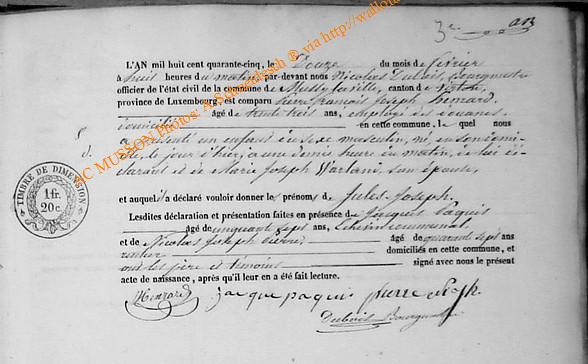 3e
L'AN mil huit cent quarante-cinq, le Douze du mois de février
à huit heures du matin, par-devant nous Nicolas Dubois, Bourgmestre
officier de l'état civil de la commune de Mussy-la-ville, canton de Virton,
province de Luxembourg, est comparu Pierre François Joseph Henrard
âgé de trente trois ans, employé des douanes
domicilié en cette commune, le quel nous
a présenté un enfant du sexe masculin, né, en son domi-
cile, le jour d'hier, à une demie heure du matin, de lui dé-
clarant et de Marie Joseph son épouse,
et auquel il a déclaré vouloir donner les prénoms de Jules Joseph.
Lesdites déclaration et présentation faites en présence de Jacques Paquis
âgé de cinquante sept ans, communal
et de Nicolas Joseph Pierre, âgé de quarante sept ans
rentier domiciliés en cette commune, et
ont les père et témoins signé avec nous le présent
acte de naissance, après qu'il leur en a été fait lecture.
Henrard jacque paquis pierre
Dubois Bourgmestre
TIMBRE DE DIMENSION
1 fr.
20 c.
MUSSON Photos: ® via http://